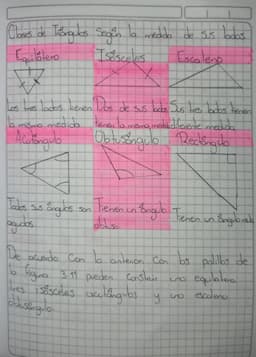 Clases de Triángulos Según la medida de sus lados
Equilátero Isósceles Escaleno
Los tres lados tienen Dos de sus lados Sus tres lados tienen
la misma medida tienen la misma medida diferente medida
Acutángulo Obtusángulo Rectángulo
Todos sus ángulos son Tienen un ángulo Tienen un ángulo recto
agudos obtuso
De acuerdo con lo anterior con los palillos de
la figura 3.11 pueden construir uno equilatero
tres isósceles acutángulos y uno escaleno
obtusángulo.